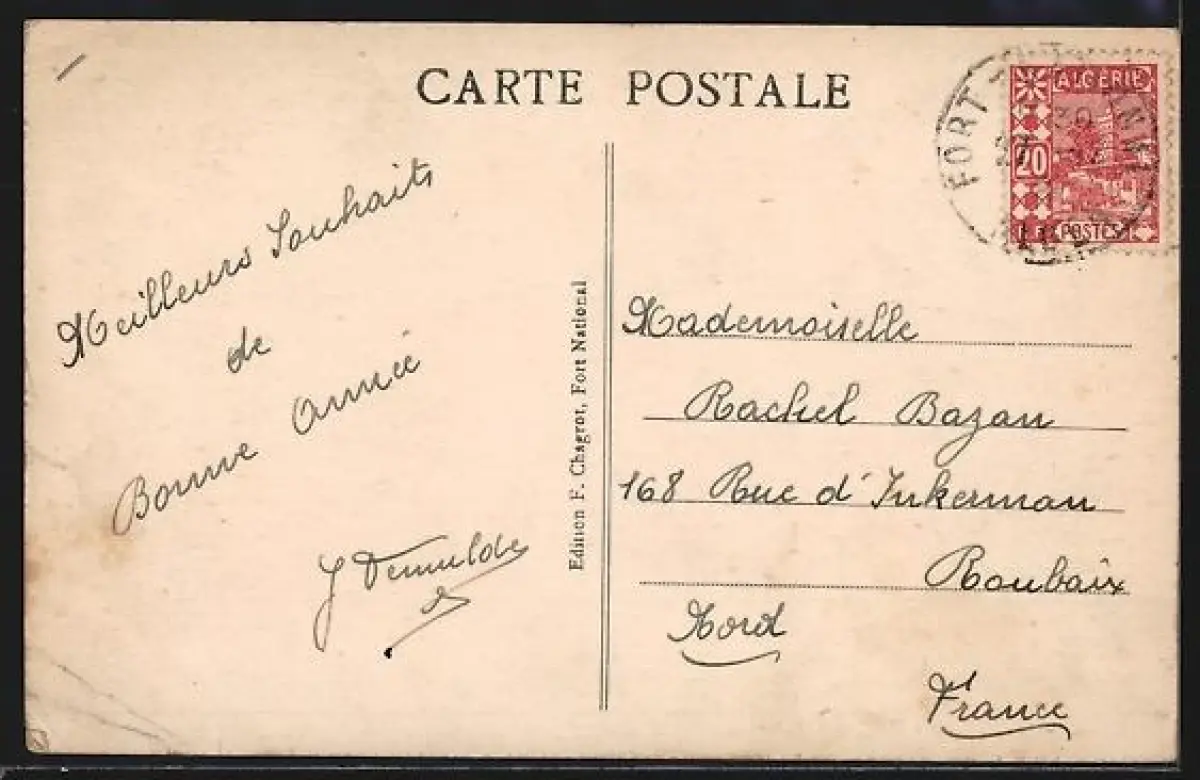 CARTE POSTALE
Meilleurs Souhaits
de
Bonne Année
J Demulder
Edition F. Chagrot, Fort National
ALGÉRIE
20
R.F. POSTES
FORT
Mademoiselle
Rachel Bazan
168 Rue d'Inkerman
Roubaix
Nord
France